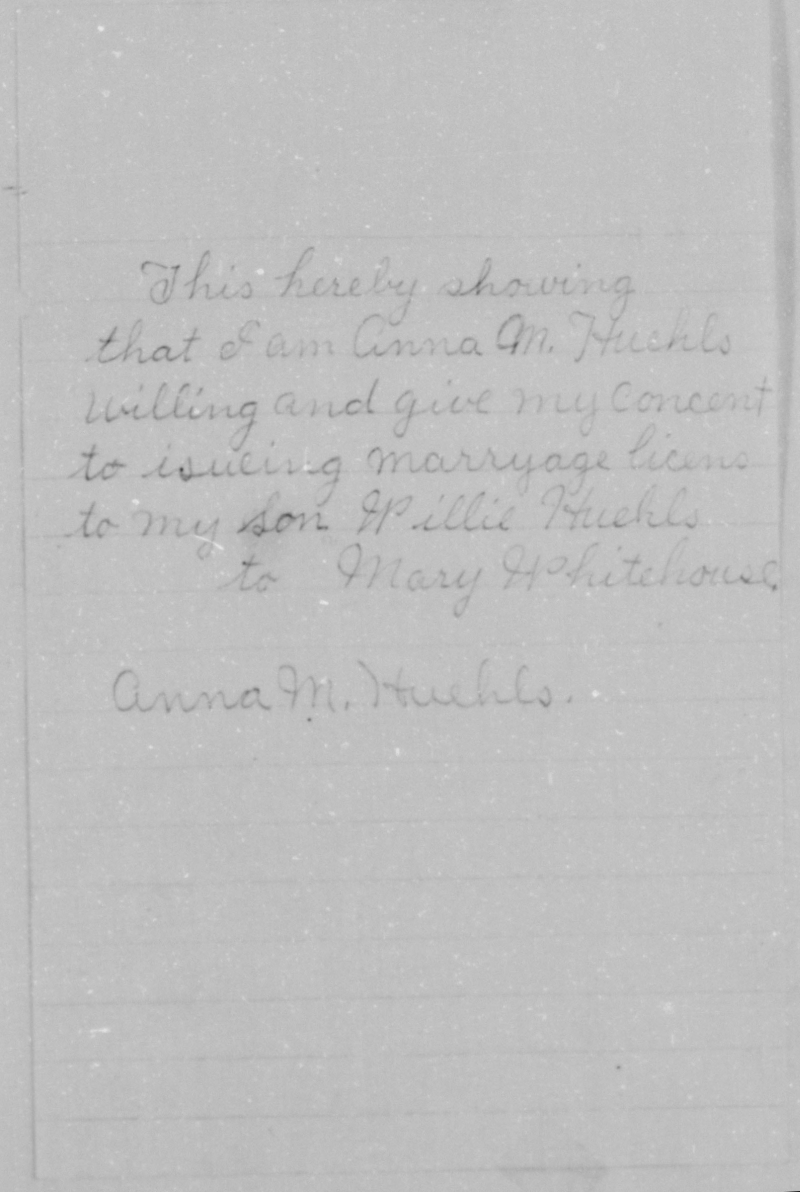 This hereby showing
that I am Anna M. Huehls
willing and give my concent
to isueing marryage licens
to my son Willie Huehls
to Mary Whitehouse.
Anna M. Huehls.